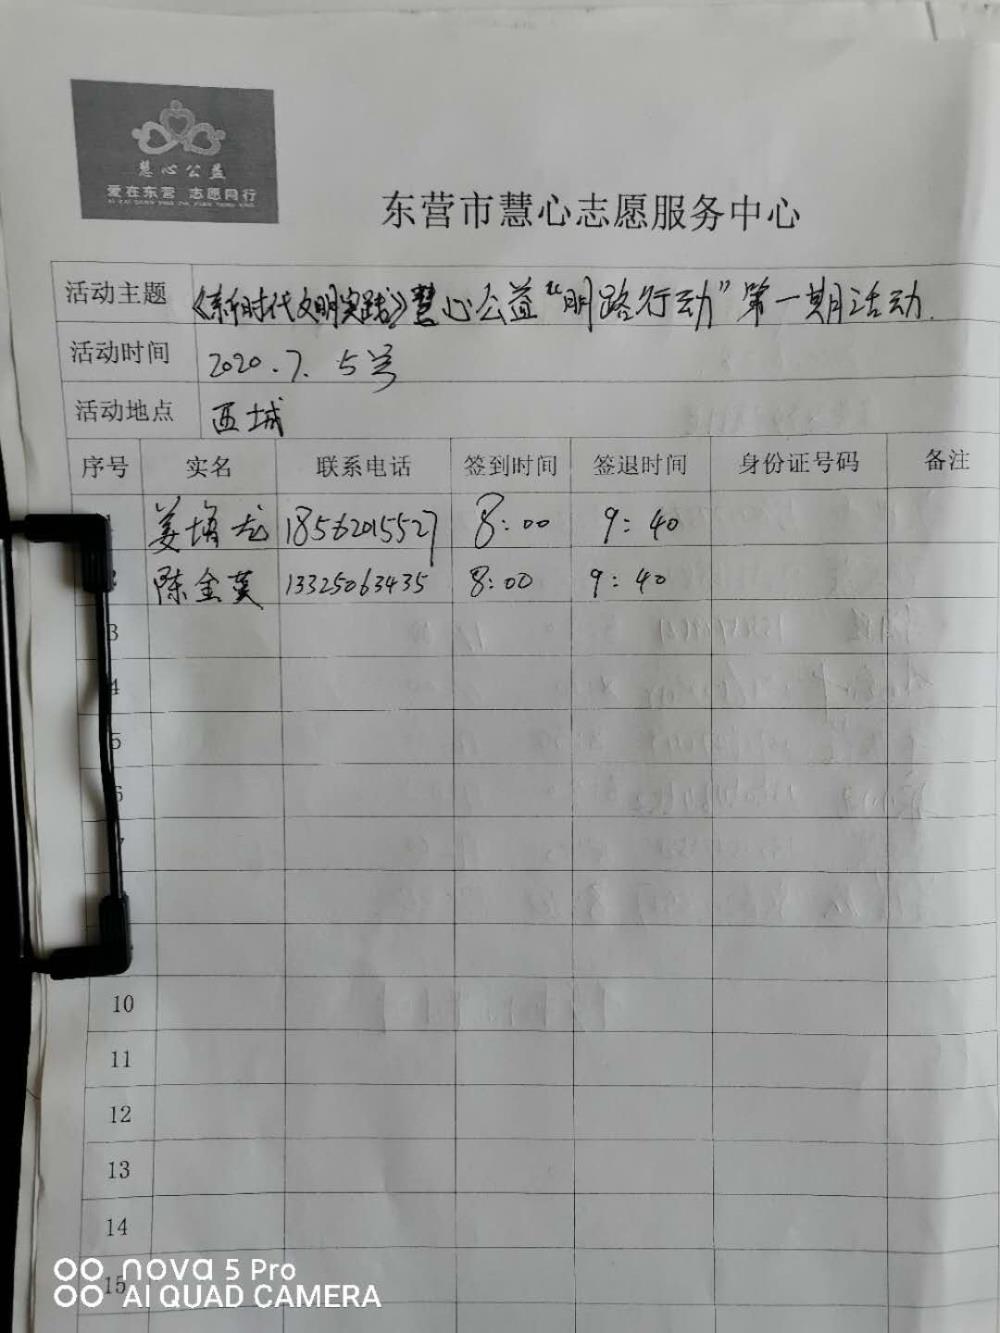 慧心公益
爱在东营 志愿同行
东营市慧心志愿服务中心
活动主题 《新时代文明实践》慧心公益“明路行动”第一期活动.
活动时间 2020.7.5号
活动地点 西城
序号 实名 联系电话 签到时间 签退时间 身份证号码 备注
1 姜培龙 18562015527 8:00 9:40
2 陈金英 13325063435 8:00 9:40
3
4
5
6
7
10
11
12
13
14
15
nova 5 Pro
AI QUAD CAMERA